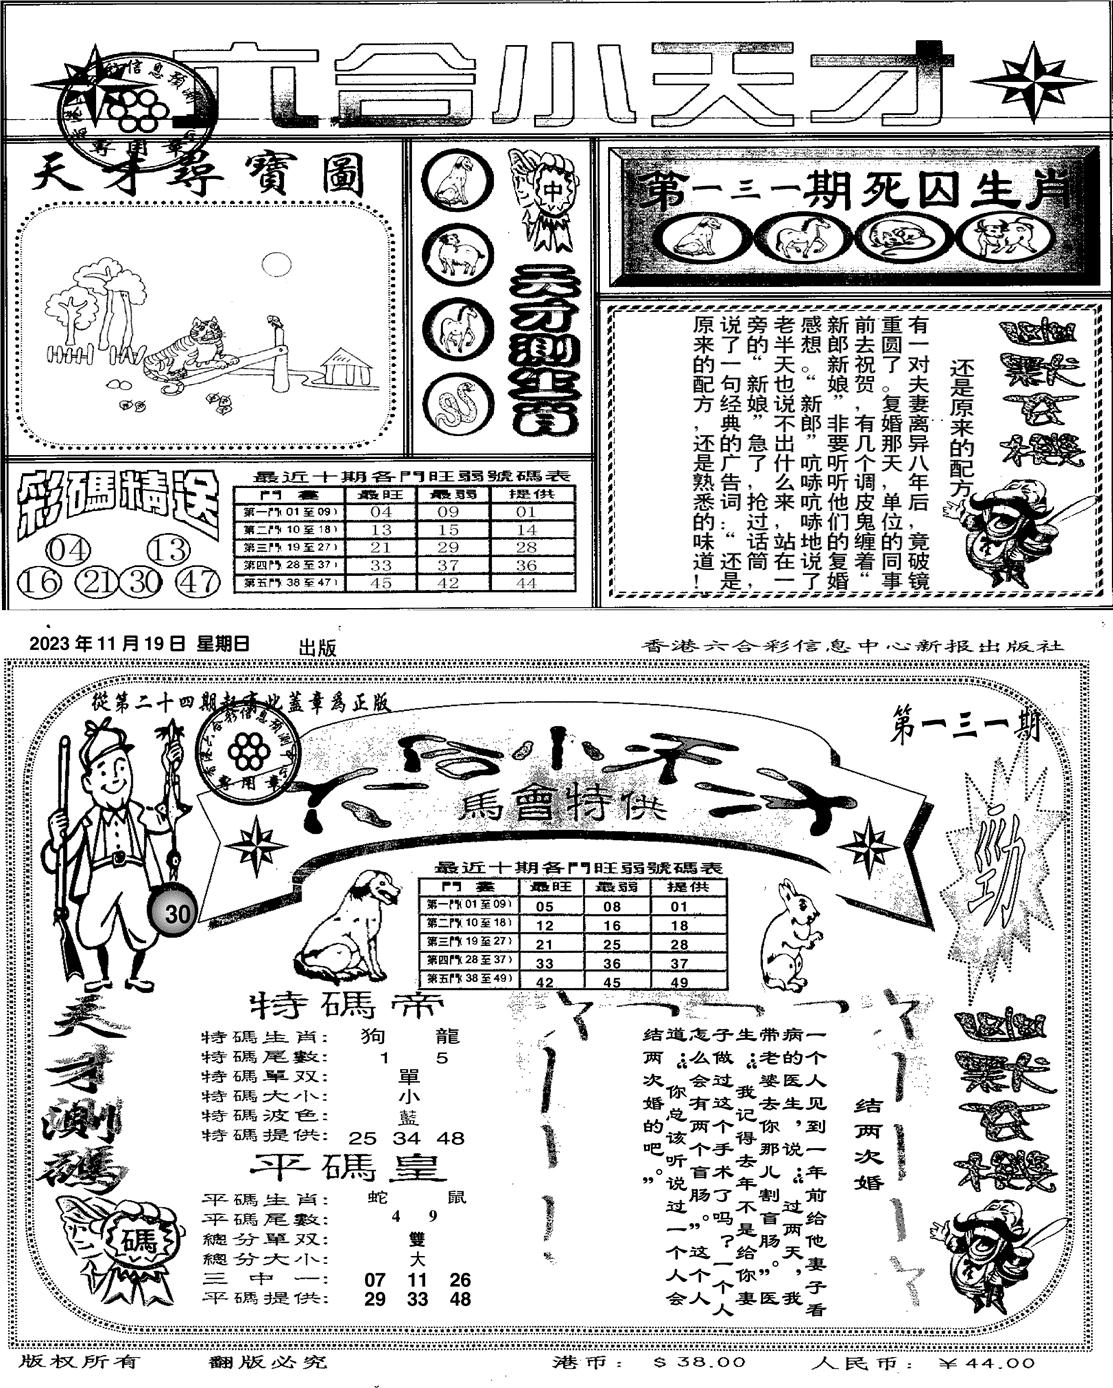 六合小天才
天才尋寶圖
中
天才測生肖
第一三一期死囚生肖
還是原來的配方
有一对夫妻离异八年后，竟破镜
重圆了。复婚那天，单位的同事
前去祝贺，有几个调皮鬼缠着“
新郎新娘”非要听听他们的复婚
感想。“新郎”吭哧吭哧地说了
老半天也说不出什么来，站在一
旁的“新娘”急了，抢过话筒，
说了一句经典的广告词：“还是
原来的配方，还是熟悉的味道！
彩碼精送
04 13
16 21 30 47
最近十期各門旺弱號碼表
門 最旺 最弱 提供
第一門(01至09) 04 09 01
第二門(10至18) 13 15 14
第三門(19至27) 21 29 28
第四門(28至37) 33 37 36
第五門(38至47) 45 42 44
2023年11月19日 星期日 出版
香港六合彩信息中心新报出版社
第一三一期
六合小天才
馬會特供
勁
30
最近十期各門旺弱號碼表
門 最旺 最弱 提供
第一門(01至09) 05 08 01
第二門(10至18) 12 16 18
第三門(19至27) 21 25 28
第四門(28至37) 33 36 37
第五門(38至49) 42 45 49
天才測碼
碼
特碼帝
特碼生肖: 狗 龍
特碼尾數: 1 5
特碼單双: 單
特碼大小: 小
特碼波色: 藍
特碼提供: 25 34 48
平碼皇
平碼生肖: 蛇 鼠
平碼尾數: 4 9
總分單双: 雙
總分大小: 大
三中一: 07 11 26
平碼提供: 29 33 48
结两次婚
一个人见到一年前给他妻子看
病的医生，说：“过两天，我
带老婆去你那儿割盲肠。”医
生：“我记得去年不是给你妻
子做过这个手术了吗？一个人
怎么会有两个盲肠”。这个人
道：“你总该听说过一个人会
结两次婚的吧。”
版权所有 翻版必究 港币： $38.00 人民币： ￥44.00